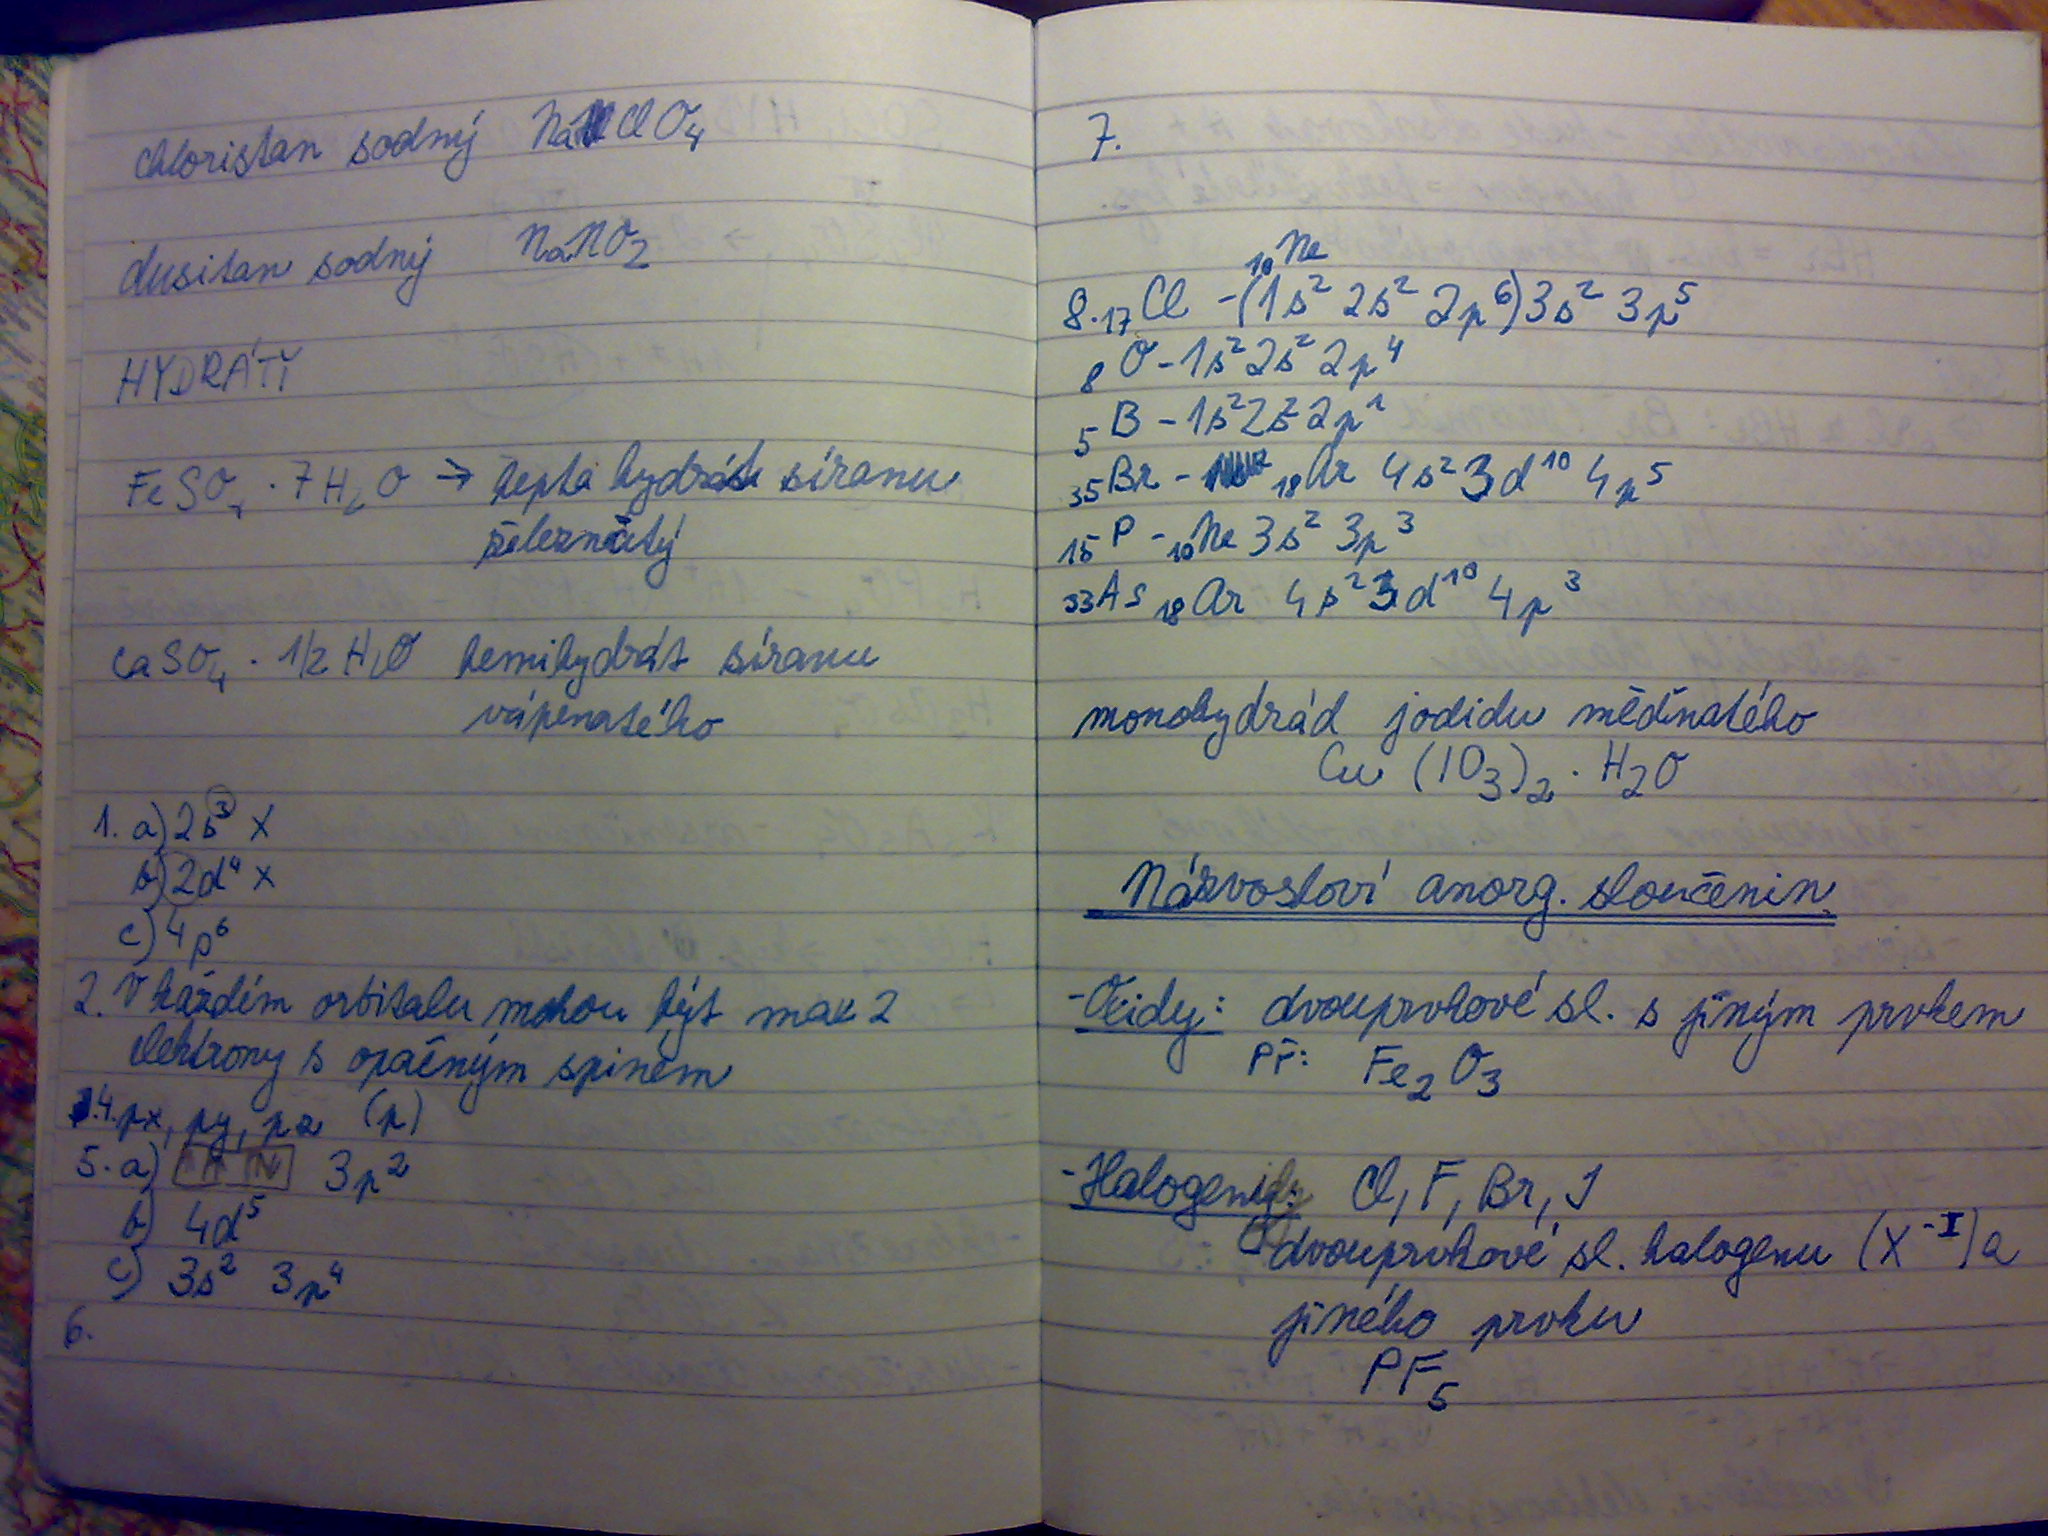 chloristan sodný NaClO₄
dusitan sodný NaNO₂
HYDRÁTY
FeSO₄ · 7H₂O → hepta hydrát síranu
železnatý
CaSO₄ · 1/2 H₂O hemihydrát síranu
vápenatého
1. a) 2s³ x
b) 2d⁴ x
c) 4p⁶
2. V každém orbitalu mohou být max 2
elektrony s opačným spinem
4. px, py, pz (p)
5. a) 3p²
b) 4d⁵
c) 3s² 3p⁴
6.
7.
₁₀Ne
8. ₁₇Cl - (1s² 2s² 2p⁶) 3s² 3p⁵
₈O - 1s² 2s² 2p⁴
₅B - 1s² 2s² 2p¹
₃₅Br - ₁₈Ar 4s² 3d¹⁰ 4p⁵
₁₅P - ₁₀Ne 3s² 3p³
₃₃As ₁₈Ar 4s² 3d¹⁰ 4p³
monohydrád jodidu měďnatého
Cu (IO₃)₂ · H₂O
Názvosloví anorg. sloučenin
- Oxidy: dvouprvkové sl. s jiným prvkem
Př: Fe₂O₃
- Halogenidy: Cl, F, Br, I
dvouprvkové sl. halogenu (X⁻ᴵ) a
jiného prvku
PF₅